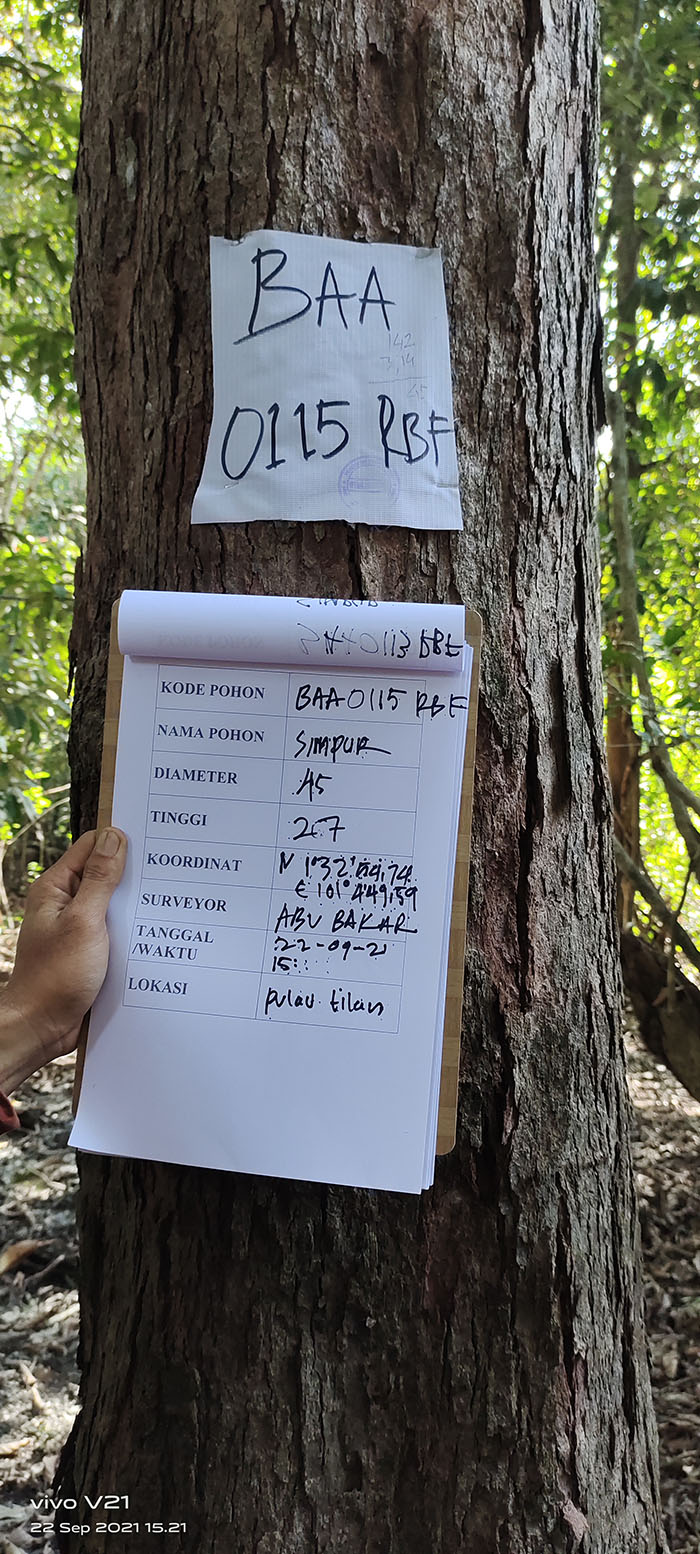 BAA
142
3,14
45
0115 RBF
KODE POHON BAA 0115 RBF
NAMA POHON SIMPUR
DIAMETER 45
TINGGI 27
KOORDINAT N 1°32'
E 101°
SURVEYOR ABU BAKAR
TANGGAL /WAKTU 22-09-21
15:
LOKASI pulau tilan
vivo V21
22 Sep 2021 15.21